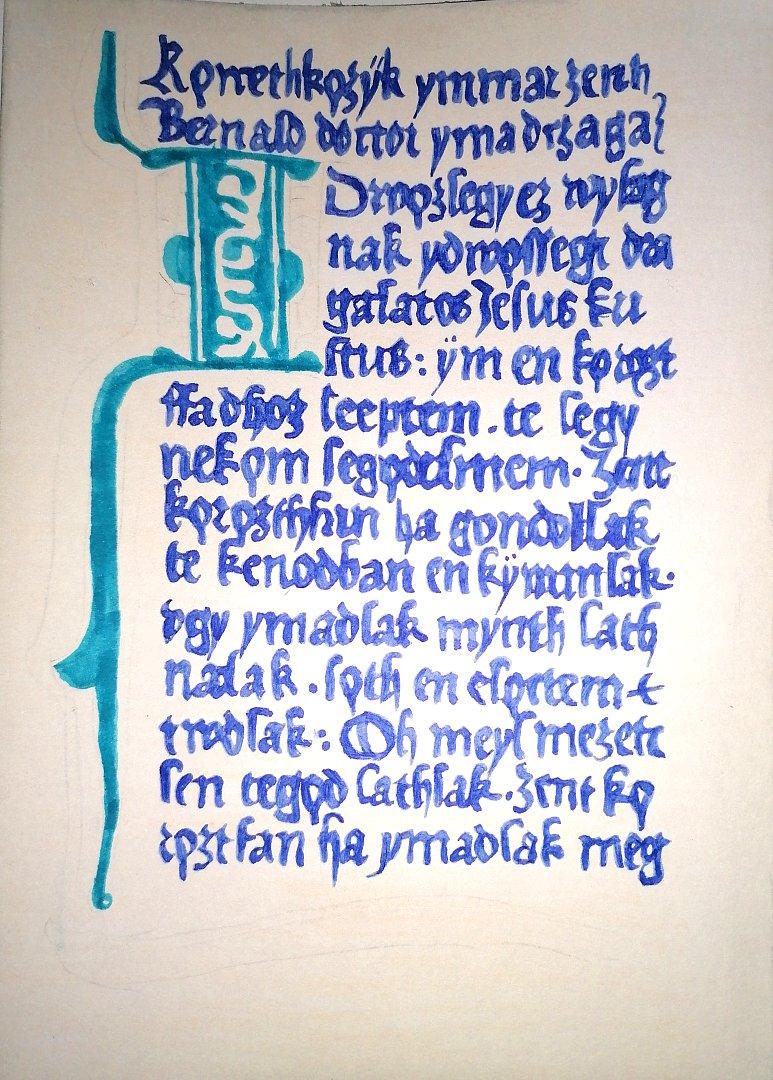 Kǫwethkǫzÿk ymmar zenth
Bernald doctor ymadrzaga
IDwǫzlegy ez wylag
nak ydwǫssege dra
galatos Jesus kri
stus: ÿm en kǫrǫzt
ffadhoz leeptem. te legy
nekǫm segǫdelmem. Zent
kǫrǫzthfan ha gondollak
te kenodban en kÿwanlak.
vgy ymadlak mynth lath
nalak. sǫth en elǫttem
twdlak: Oh meyl mezete
len tegǫd lathlak. Zent kǫ
rǫztfan ha ymadlak meg